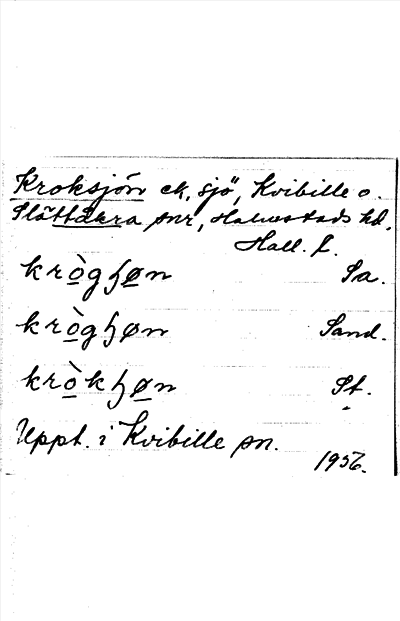 Kroksjön ek, sjö, Kvibille o.
Slättåkra snr, Halmstads hd,
Hall. l.
krògɧøn Sa.
krògɧøn Sand.
kròkɧøn St.
Uppt. i Kvibille sn.
1956.